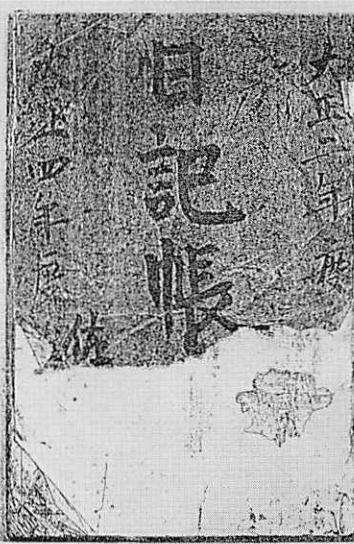 大正三年度
日記帳
大正四年度
佐